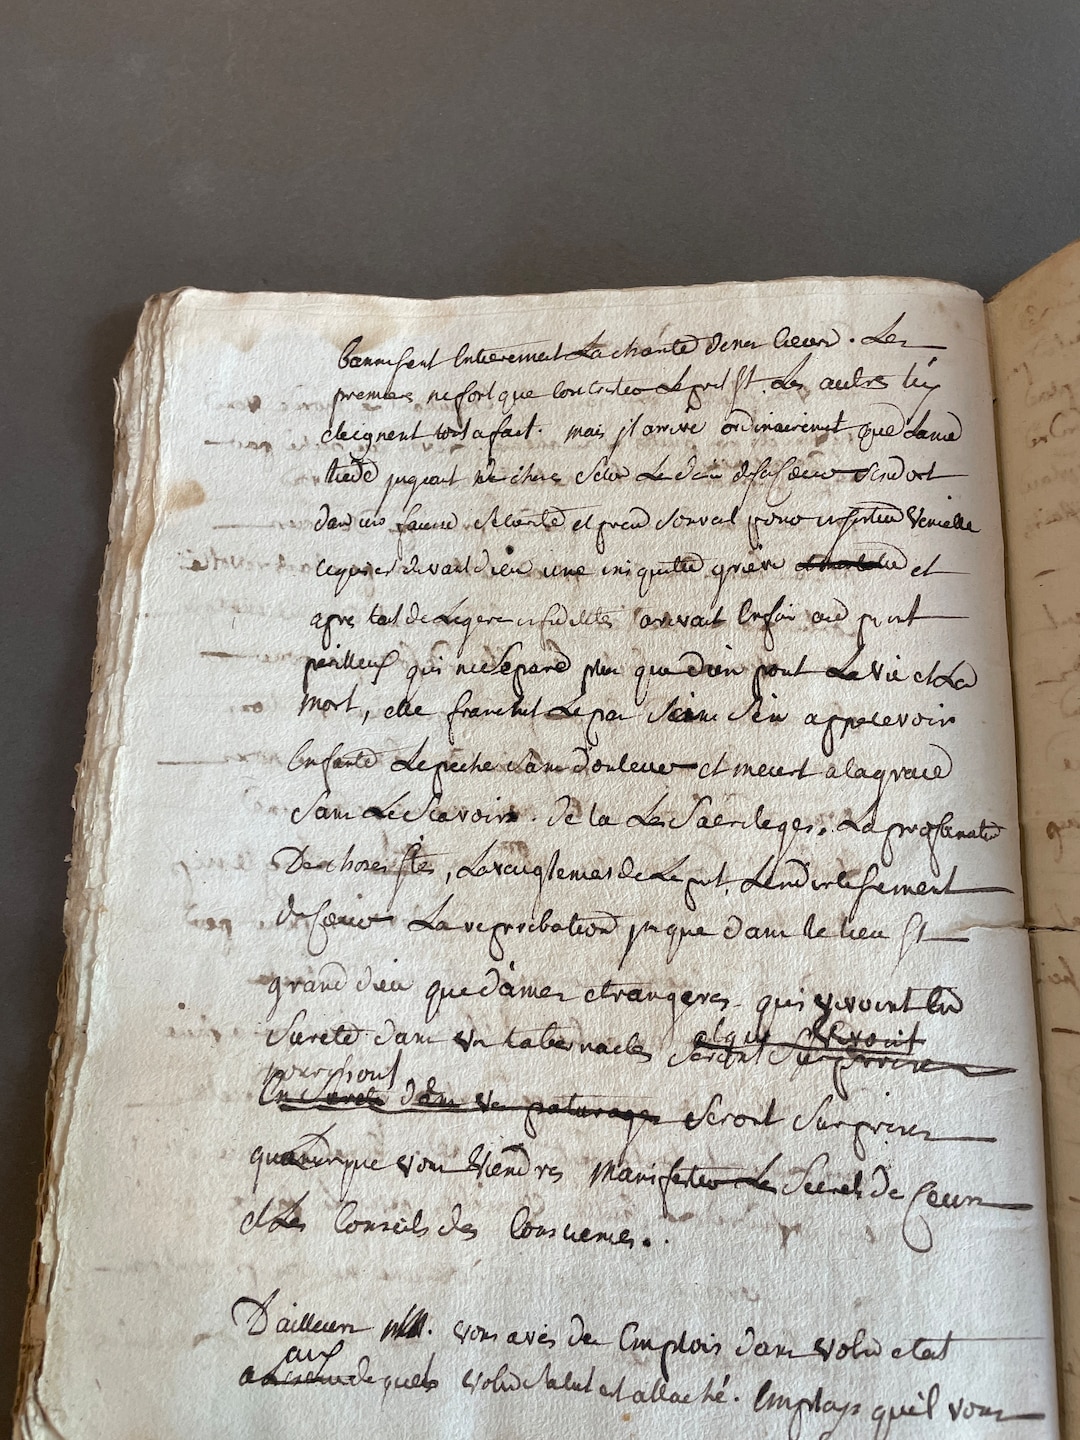 bannissent Entierement La charité de nos Cœurs. Les
premiers ne font que contrister Lesprit St. Les autres
eteignent tout a fait. mais jl arrive ordinairement que Lame
tiede jugeant
dans une fausse securité et prend souvent pour infidelité Venielle
ce qui est devant dieu une iniquité griève et
apres tant de Legere infidelités arrivant Enfin au point
perilleux qui ne Separe plus que d'un point La vie et La
mort, elle franchit Le pas Sans S'en appercevoir
Enfante Le peché sans douleur et meurt a la grace
Sans Le Scavoir. de la Les Sacrileges. La profanation
De choses Stes, Laveuglement de Lesprit, Lendurcissement
de Cœur La reprobation jusque dans le lieu St
grand dieu que d'âmes etrangeres qui vivoint En
Sureté dans vos tabernacles et qui vivoit seront Surprises
nourrissoit
En Sureté dans vos paturages Seront Surprises
quand vous Viendres Manifester Les Secrets de Ceurs
et Les Conseils des Consciences.
D'ailleurs vous aves des Emplois dans votre etat
aux
quels votre salut est attaché. Emplois qu'il vous